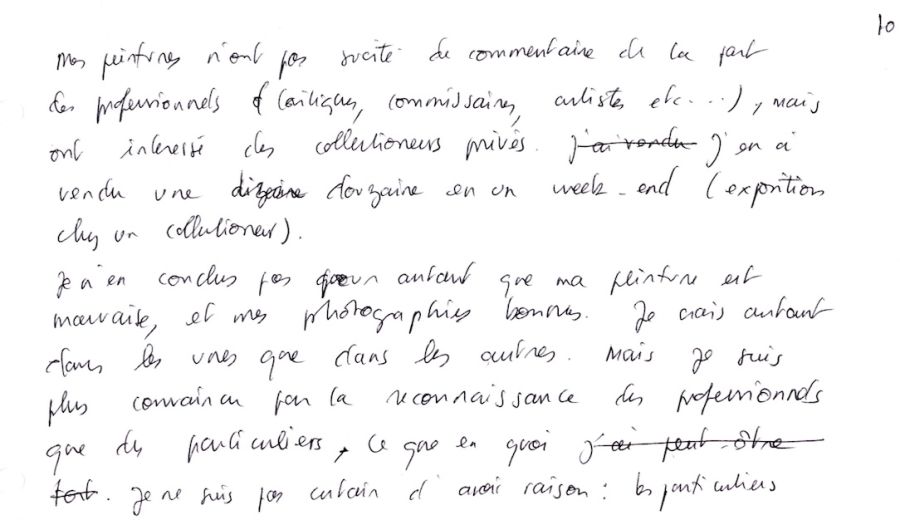 10
Mes peintures n'ont pas sucité de commentaire de la part
des professionnels (critiques, commissaires, artistes etc...), mais
ont interessé des collectioneurs privés. j'ai vendu j'en ai
vendu une dizaine douzaine en un week-end (exposition
chez un collectioneur).
Je n'en conclus pas pour autant que ma peinture est
mauvaise, et mes photographies bonnes. Je crois autant
dans les unes que dans les autres. Mais je suis
plus convaincu par la reconnaissance des professionnels
que des particuliers, ce que en quoi j'ai peut-être
tort. Je ne suis pas certain d'avoir raison : les particuliers